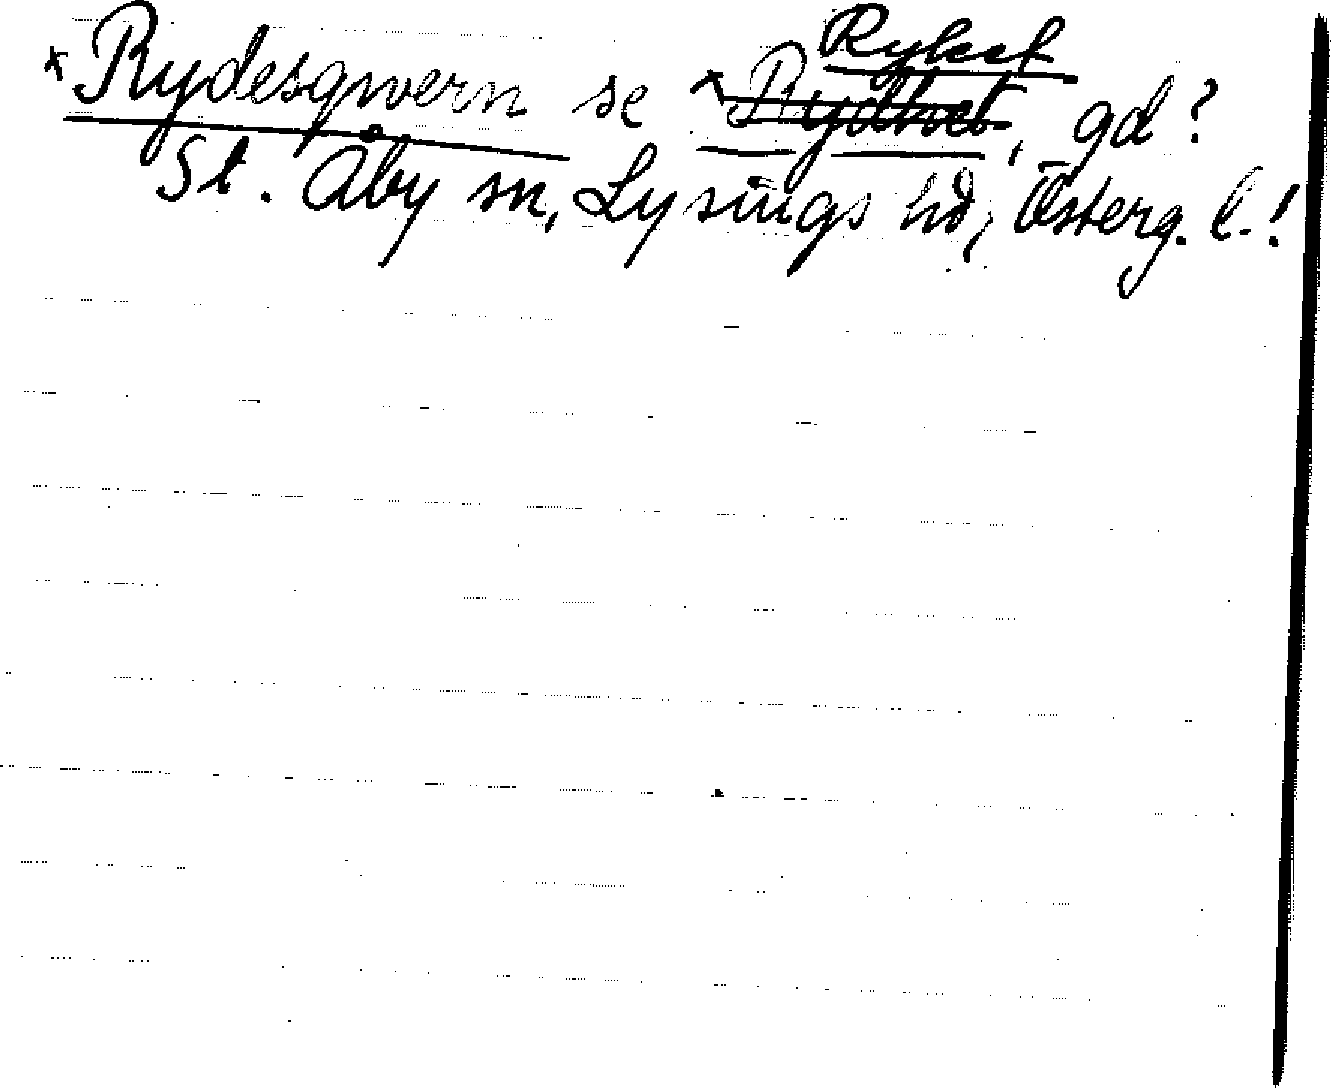 × Rydesqwern se × Rydhet, gd?
St. Åby sn, Lysings hd, Österg. l.!